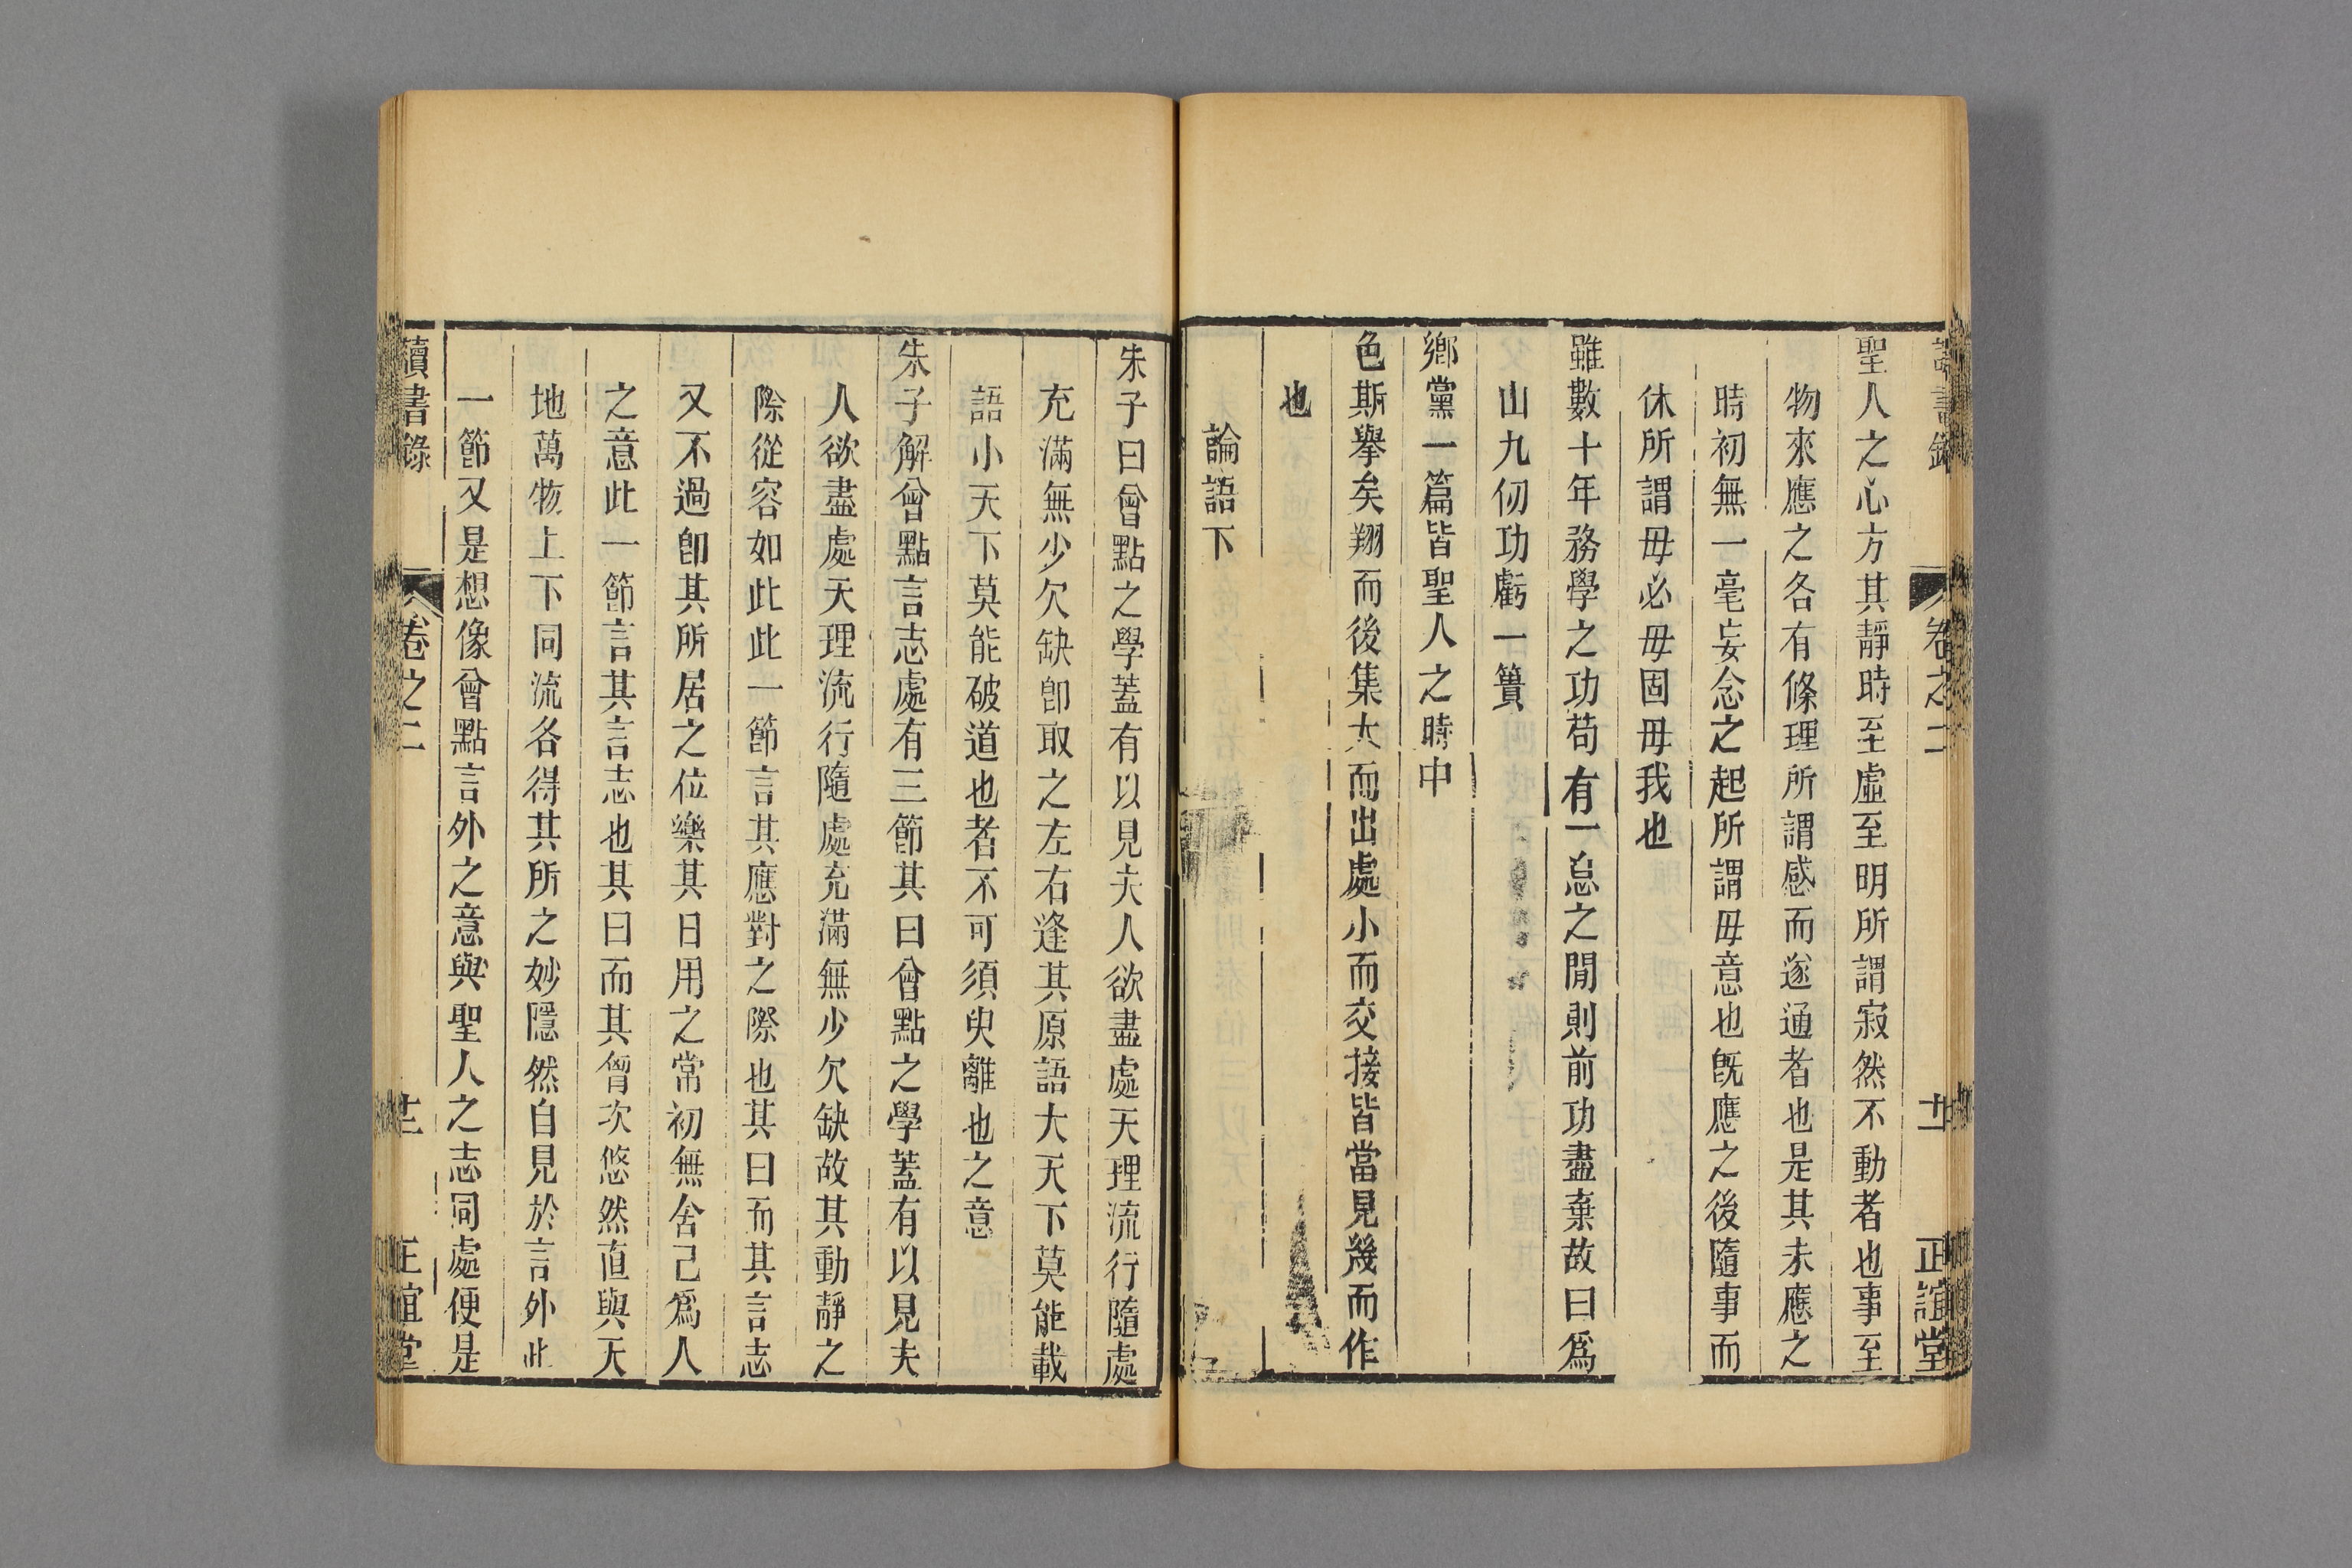 讀書錄 卷之二 廿一 正誼堂
聖人之心方其靜時至虛至明所謂寂然不動者也事至
物來應之各有條理所謂感而遂通者也是其未應之
時初無一毫妄念之起所謂毋意也旣應之後隨事而
休所謂毋必毋固毋我也
雖數十年務學之功苟有一怠之閒則前功盡棄故曰爲
山九仞功虧一簣
鄉黨一篇皆聖人之時中
色斯擧矣翔而後集大而出處小而交接皆當見幾而作
也
論語下
朱子曰曾點之學蓋有以見夫人欲盡處天理流行隨處
充滿無少欠缺卽取之左右逢其原語大天下莫能載
語小天下莫能破道也者不可須臾離也之意
朱子解曾點言志處有三節其曰曾點之學蓋有以見夫
人欲盡處天理流行隨處充滿無少欠缺故其動靜之
際從容如此此一節言其應對之際也其曰而其言志
又不過卽其所居之位樂其日用之常初無舍己爲人
之意此一節言其言志也其曰而其胷次悠然直與天
地萬物上下同流各得其所之妙隱然自見於言外此
一節又是想像曾點言外之意與聖人之志同處便是
讀書錄 卷之二 廿二 正誼堂